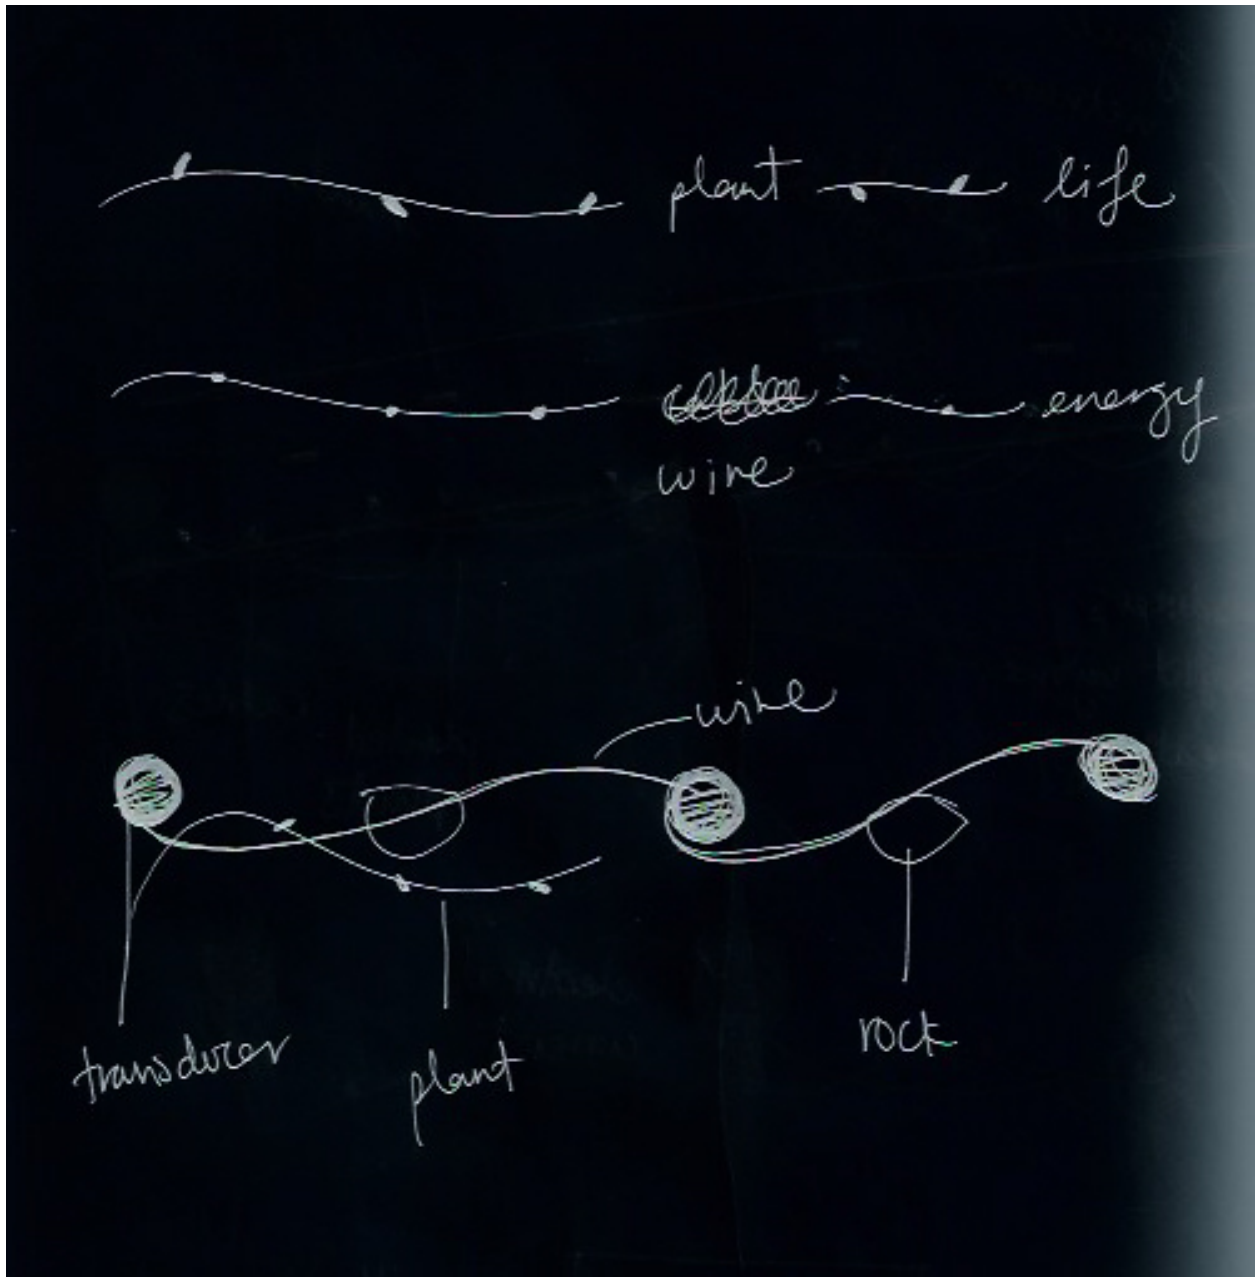 plant life
energy
wire
wire
transducer
plant
rock